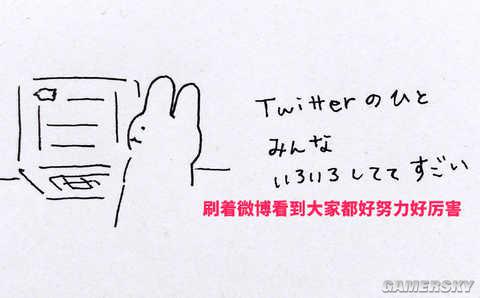 Twitterのひと
みんな
いろいろしてて すごい
刷着微博看到大家都好努力好厉害
GAMERSKY